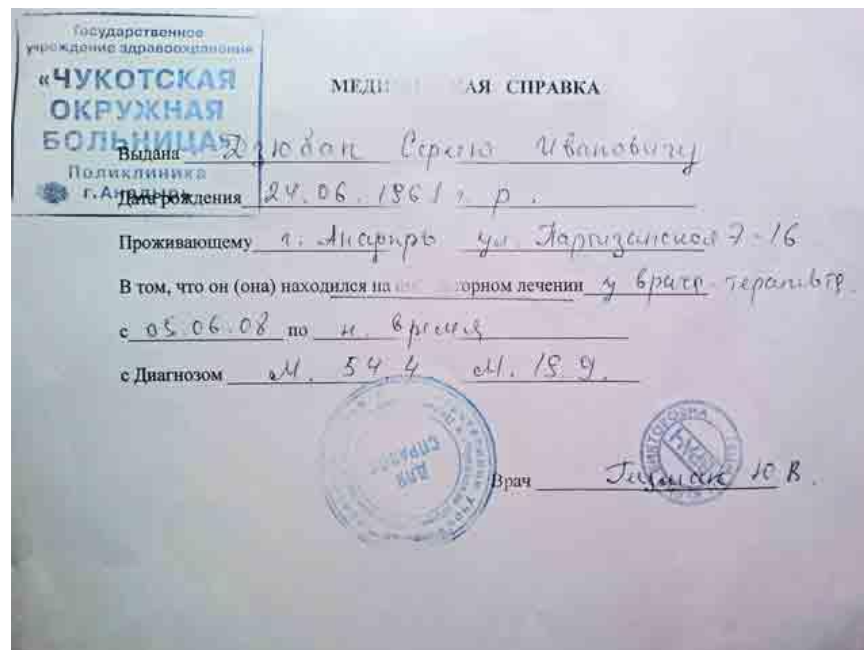 Государственное
учреждение здравоохранения
«ЧУКОТСКАЯ
ОКРУЖНАЯ
БОЛЬНИЦА»
Поликлиника
г.Анадырь
МЕДИ АЯ СПРАВКА
Выдана Дзюбан Сергею Ивановичу
Дата рождения 24.06.1961 г. р.
Проживающему г. Анадырь ул. Партизанская 7-16
В том, что он (она) находился на орном лечении у врача-терапевта
с 05.06.08 по н. время
с Диагнозом М. 54.4 М. 19 9.
ДЛЯ
СПРАВОК
Врач Ю В.